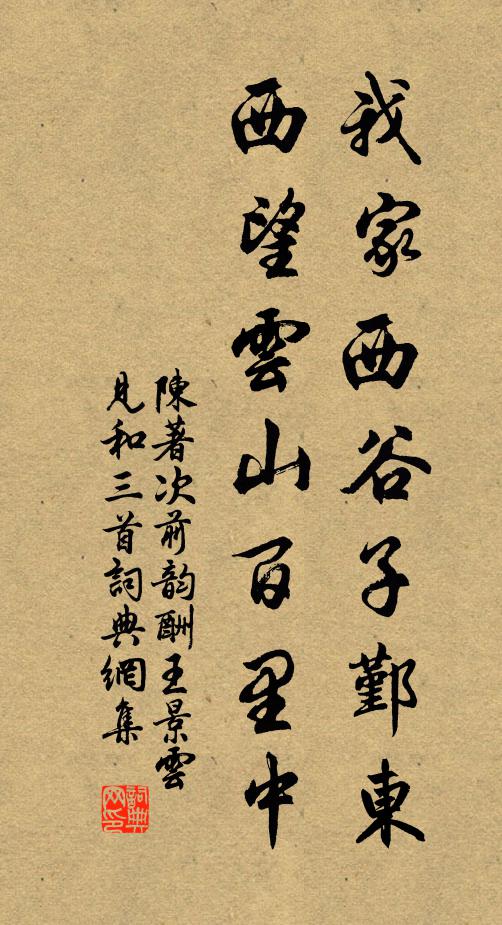 我家西谷子鄞東
西望雲山百里中
陳著次前韵酬王景雲
見和三首詞典網集
詞典
网印